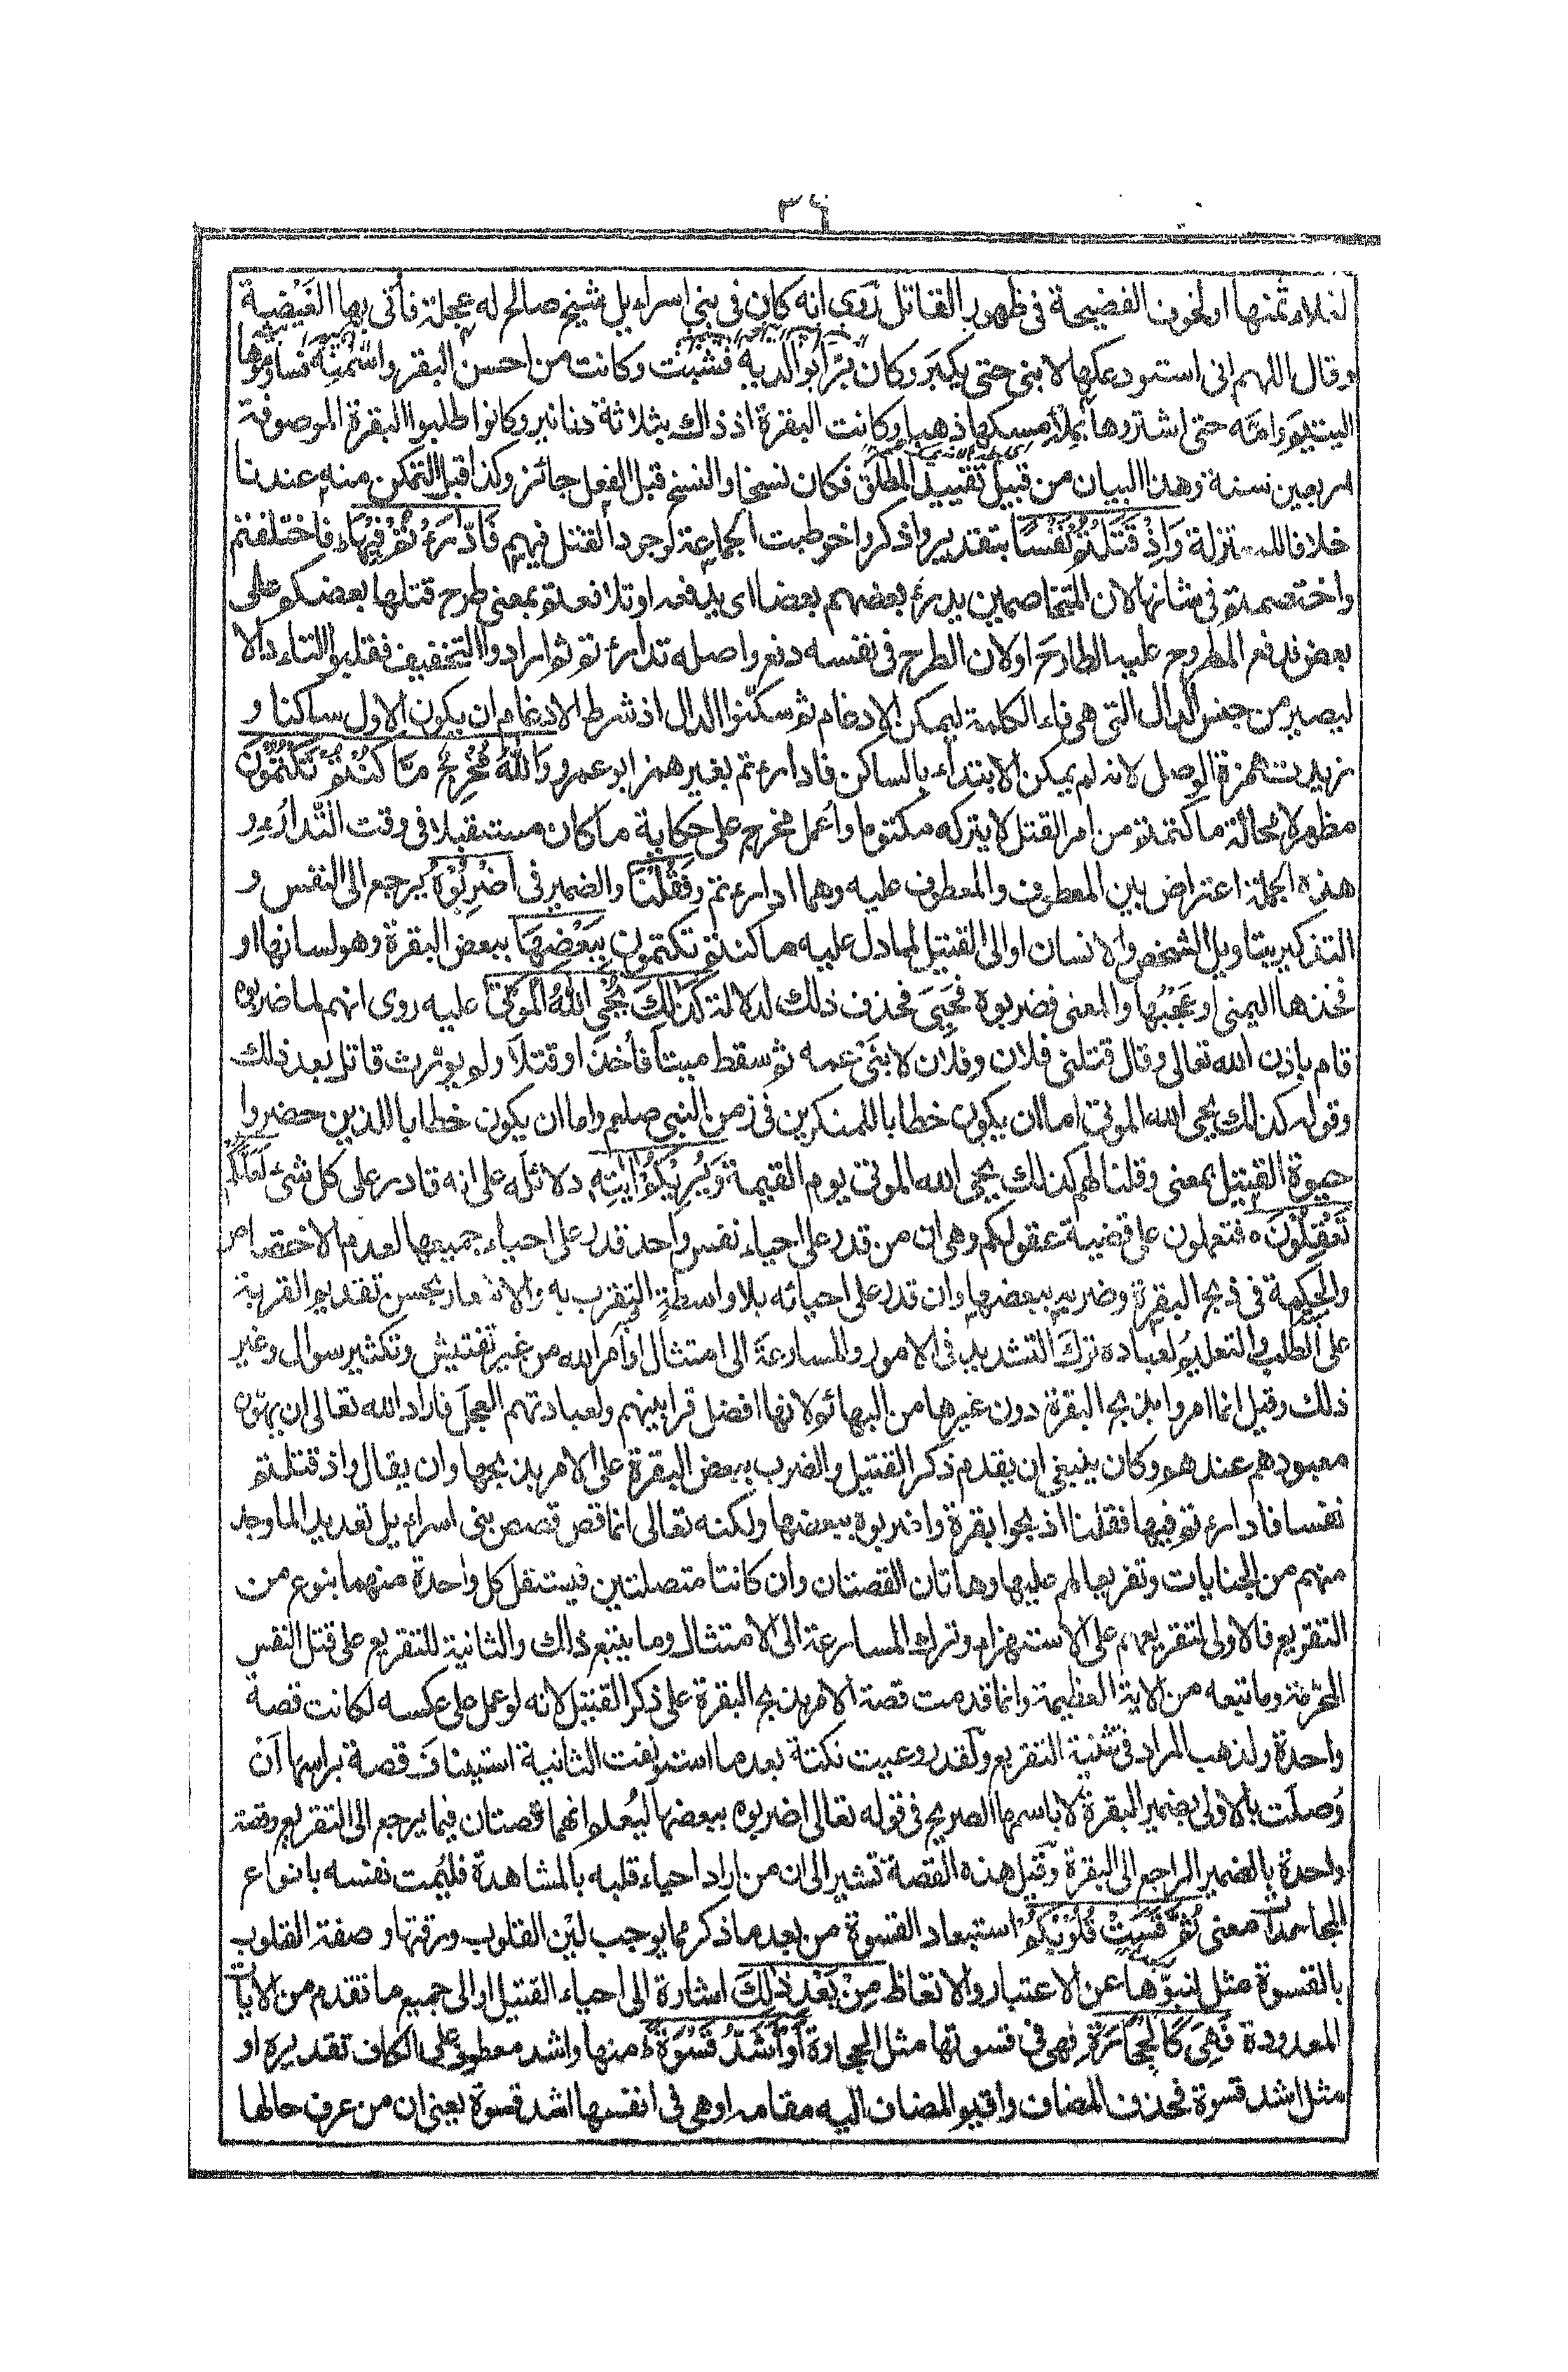 ٣٤
لغلاء ثمنها او لخوف الفضيحة فى ظهور القاتل رُوى انه كان فى بنى اسراءيل شيخ صالح له عجلة فاتى بها الغيضة
وقال اللهم انى استودعكها لابنى حتى يكبَر وكان بَرًّا بوالديه فشبت وكانت من احسن البقر واسمنِه فساوموها
اليتيم وامّه حتى اشتروها بملأ مسكها ذهبا وكانت البقرة اذ ذاك بثلاثة دنانير وكانوا طلبوا البقرة الموصوفة
اربعين سنة وهذا البيان من قبيل تقييد المطلق فكان نسخا والنسخ قبل الفعل جائز وكذا قبل التمكن منه عندنا
خلافا للمعتزلة وَاِذْ قَتَلْتُمْ نَفْسًا بتقدير واذكروا خوطبت الجماعة لوجود القتل فيهم فَادّٰرَءْتُمْ فِيْهَا فاختلفتم
واختصمتم فى شانها لان المتخاصمين يدرء بعضهم بعضا اى يدفعه او تدافعتم بمعنى طرح قتلها بعضكم على
بعض فدفع المطروح عليه الطارحَ او لان الطرح فى نفسه دفع واصله تدارءتم ثم ارادوا التخفيف فقلبوا التاء دالا
ليصير من جنس الدال التى هى فاء الكلمة ليمكن الادغام ثم سكّنوا الدال اذ شرط الادغام ان يكون الاول ساكنا و
زيدت همزة الوصل لانه لم يمكن الابتداء بالساكن فادارءتم بغير همز ابو عمرو وَاللّٰهُ مُخْرِجٌ مَّا كُنْتُمْ تَكْتُمُوْنَ
مظهر لا محالة ما كتمتم من امر القتل لا يتركه مكتوما واُعمل مخرج على حكاية ما كان مستقبلا فى وقت التّدارء و
هذه الجملة اعتراض بين المعطوف والمعطوف عليه وهما ادارءتم وفَقُلْنَا والضمير فى اضْرِبُوْهُ يرجع الى النفس و
التذكير بتاويل الشخص والانسان او الى القتيل لما دل عليه ما كنتم تكتمون بِبَعْضِهَا ببعض البقرة وهو لسانها او
فخذها اليمنى او عَجْبُها والمعنى فضربوه فحَيِىَ فحذف ذلك لدلالة كَذٰلِكَ يُحْىِ اللّٰهُ الْمَوْتٰى عليه روى انهم لما ضربوه
قام باذن الله تعالى وقال قتلنى فلان وفلان لابنَىْ عمه ثم سقط ميتا فأخذا وقتلا ولم يورث قاتل بعد ذلك
وقوله كذلك يحى الله الموتى اما ان يكون خطابا للمنكرين فى زمن النبى صلعم واما ان يكون خطابا للذين حضروا
حيوة القتيل بمعنى وقلنا لهم كذلك يحى الله الموتى يوم القيمة وَيُرِيْكُمْ اٰيٰتِهٖ دلائله على انه قادر على كل شئ لَعَلَّكُمْ
تَعْقِلُوْنَ ه فتعملون على قضية عقولكم وهى ان من قدر على احياء نفس واحد قدر على احياء جميعها لعدم الاختصاص
والحكمة فى ذبح البقرة وضربه ببعضها وان قدر على احيائه بلا واسطة التقرب به والاشعار بحسن تقديم القربة
على الطلب والتعليم لعباده ترك التشديد فى الامور والمسارعة الى امتثال اوامر الله من غير تفتيش وتكثير سوال وغير
ذلك وقيل انما امروا بذبح البقرة دون غيرها من البهائم لانها افضل قرابينهم ولعبادتهم العجل فاراد الله تعالى ان يهوّن
معبودهم عندهم وكان ينبغى ان يقدم ذكر القتيل والضرب ببعض البقرة على الامر بذبحها وان يقال واذ قتلتم
نفسا فادارءتم فيها فقلنا اذبحوا بقرة واضربوه ببعضها ولكنه تعالى انما قص قصص بنى اسراءيل تعديدا لما وجد
منهم من الجنايات وتقريعا لهم عليها وهاتان القصتان وان كانتا متصلتين فيستقل كل واحدة منهما بنوع من
التقريع فالاولى لتقريعهم على الاستهزاء وترك المسارعة الى الامتثال وما يتبع ذلك والثانية للتقريع على قتل النفس
المحرّمة وما تبعه من الاية العظيمة وانما قدمت قصة الامر بذبح البقرة على ذكر القتيل لانه لو عمل على عكسه لكانت قصة
واحدة ولذهب المراد فى تثنية التقريع ولقد روعيت نكتة بعد ما استونفت الثانية استيناف قصة براسها ان
وُصلت بالاولى بضمير البقرة لا باسمها الصريح فى قوله تعالى اضربوه ببعضها ليُعلم انهما قصتان فيما يرجع الى التقريع وقصة
واحدة بالضمير الراجع الى البقرة وقيل هذه القصة تشير الى ان من اراد احياء قلبه بالمشاهدة فليُمت نفسه بانواع
المجاهدات معنى ثُمَّ قَسَتْ قُلُوْبُكُمْ استبعاد القسوة من بعد ما ذكر مما يوجب لين القلوب ورقتها وصفة القلوب
بالقسوة مثل لنبوّها عن الاعتبار والاتعاظ مِنْ بَعْدِ ذٰلِكَ اشارة الى احياء القتيل او الى جميع ما تقدم من الايات
المعدودة فَهِىَ كَالْحِجَارَةِ فهى فى قسوتها مثل الحجارة اَوْ اَشَدُّ قَسْوَةً ط منها واشد معطوف على الكاف تقديره او
مثل اشد قسوة فحذف المضاف واقيم المضاف اليه مقامه او هى فى انفسها اشد قسوة يعنى ان من عرف حالها